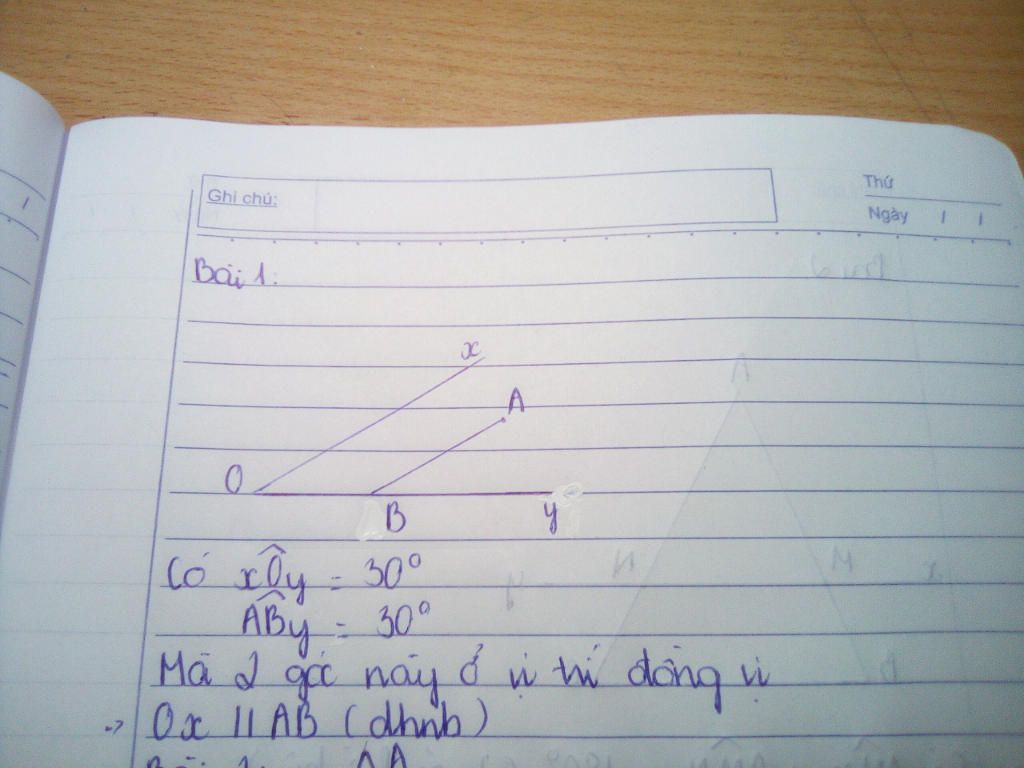 Ghi chú:
Thứ
Ngày / /
Bài 1:
x
A
O
B
y
Có xÔy = 30°
AB̂y = 30°
Mà 2 góc này ở vị trí đồng vị
-> Ox // AB (dhnb)